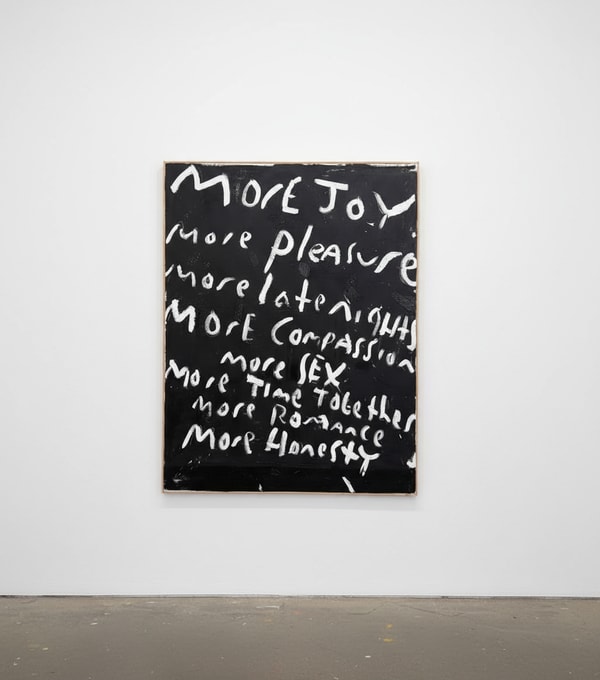 MORE JOY
More pleasure
More late nigHts
MORE COMPASSION
More SEX
More Time Together
More Romance
More Honesty